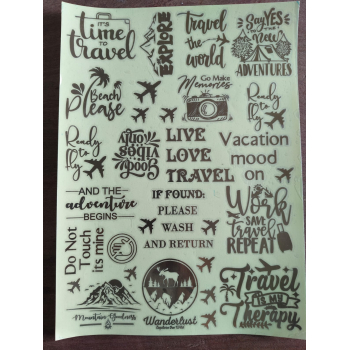 IT'S
time
to
travel
EXPLORE
travel
the
world
Say YES
to
New
ADVENTURES
Beach
Please
Go Make
Memories
Ready
to
fly
Good
vibes
only
LIVE
LOVE
TRAVEL
Vacation
mood
on
Ready
to
fly
AND THE
adventure
BEGINS
IF FOUND:
PLEASE
WASH
AND RETURN
Work
SAVE
travel
REPEAT
Do Not
Touch
it's mine
Mountain Goodness
Wanderlust
Travel
IS MY
Therapy